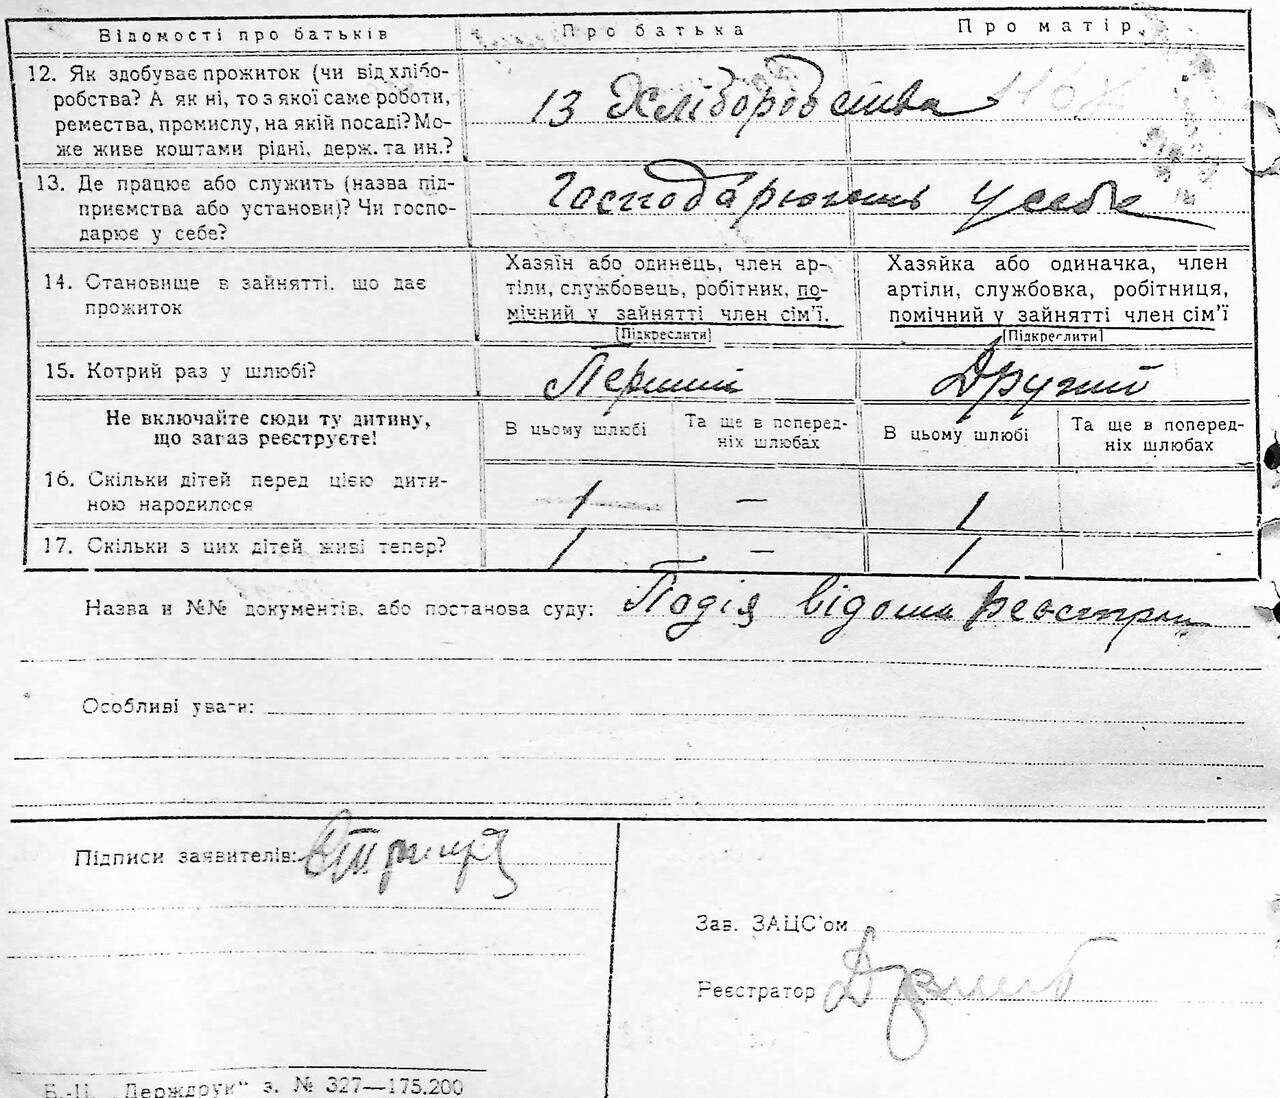 Відомості про батьків Про батька Про матір
12. Як здобуває прожиток (чи від хлібо-
робства? А як ні, то з якої саме роботи,
ремества, промислу, на якій посаді? Мо-
же живе коштами рідні, держ. та ин.?
Із Хліборобства
13. Де працює або служить (назва під-
приємства або установи)? Чи госпо-
дарює у себе?
Господарюють у себе
14. Становище в зайнятті, що дає
прожиток
Хазяїн або одинець, член ар-
тіли, службовець, робітник, по-
мічний у зайнятті член сім'ї.
[Підкреслити]
Хазяйка або одиначка, член
артіли, службовка, робітниця,
помічний у зайнятті член сім'ї
[Підкреслити]
15. Котрий раз у шлюбі? Перший Другий
Не включайте сюди ту дитину,
що зараз реєструєте!
В цьому шлюбі
Та ще в поперед-
ніх шлюбах
В цьому шлюбі
Та ще в поперед-
ніх шлюбах
16. Скільки дітей перед цією дити-
ною народилося
1 — 1
17. Скільки з цих дітей живі тепер? 1 — 1
Назва и №№ документів, або постанова суду: Подія відома реєстрац
Особливі уваги:
Підписи заявителів:
Зав. ЗАЦС'ом
Реєстратор
Б.-Ц. „Держдрук" з. № 327—175.200